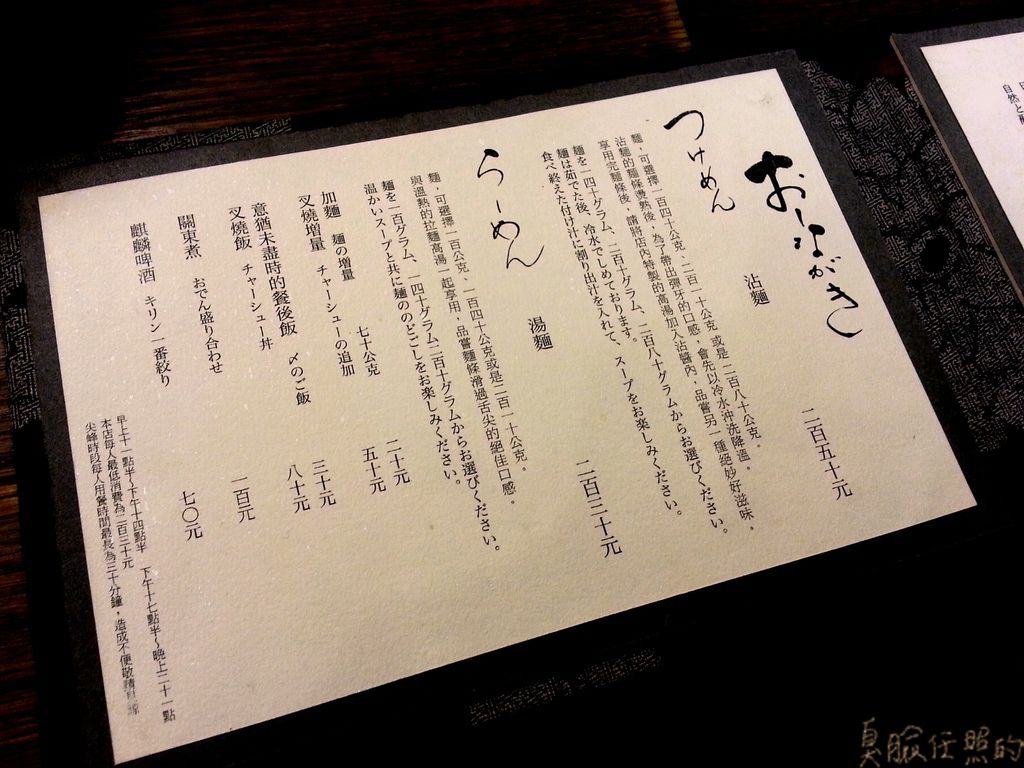 おしながき
つけめん 沾麵 二百五十元
麵，可選擇一百四十公克、二百一十公克或是二百八十公克。
沾麵的麵條燙熟後，為了帶出彈牙的口感，會先以冷水沖洗降溫。
享用完麵條後，請將店內特製的高湯加入沾醬內，品嘗另一種絕妙好滋味。
麺を一四十グラム、二百十グラム、二百八十グラムからお選びください。
麺は茹でた後、冷水でしめております。
食べ終えた付け汁に割り出汁を入れて、スープをお楽しみください。
らーめん 湯麵 二百三十元
麵，可選擇一百公克、一百四十公克或是二百一十公克。
與溫熱的拉麵高湯一起享用，品嘗麵條滑過舌尖的絕佳口感。
麺を一百グラム、一四十グラム二百十グラムからお選びください。
温かいスープと共に麺ののどごしをお楽しみください。
加麵 麺の増量 七十公克 二十元
叉燒增量 チャーシューの追加 五十元
意猶未盡時的餐後飯 〆のご飯 三十元
叉燒飯 チャーシュー丼 八十元
關東煮 おでん盛り合わせ 一百元
麒麟啤酒 キリン一番絞り 七〇元
早上十一點半～下午十四點半 下午十七點半～晚上二十一點
本店每人最低消費為二百三十元
尖峰時段每人用餐時間最長為三十分鐘，造成不便敬請見諒
自然と
臭臉任照的